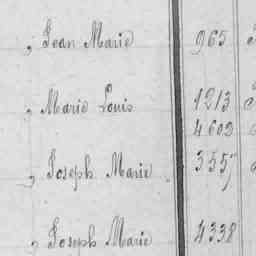 , Jean Marie 965
, Marie Louis 1213
4602
, Joseph Marie 3557
, Joseph Marie 4338